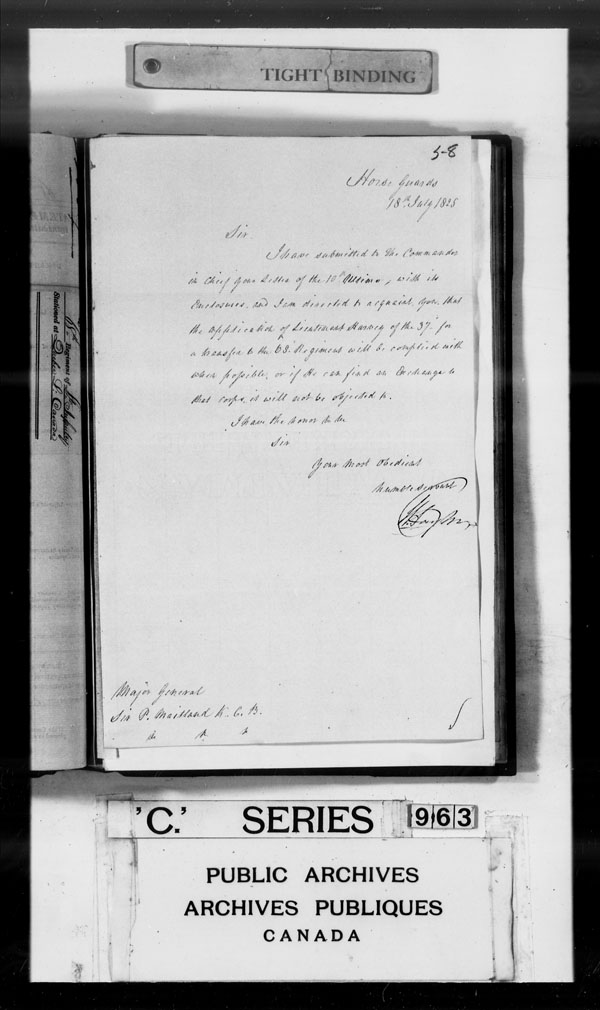 TIGHT BINDING
58
Horse Guards
18th July 1825
Sir
I have submitted to The Commander
in Chief your Letter of the 10th Ultimo, with its
Enclosures, and I am directed to acquaint you, that
the application of Lieutenant Harvey of the 37th for
a transfer to the 68 Regiment will be complied with
when possible, or if He can find an Exchange to
that corps, it will not be objected to.
I have the honor to be
Sir
Your Most Obedient
Humble Servant
Major General
Sir P. Maitland K. C. B.
&c &c &c
Regiment of
Stationed at
'C.' SERIES 963
PUBLIC ARCHIVES
ARCHIVES PUBLIQUES
CANADA